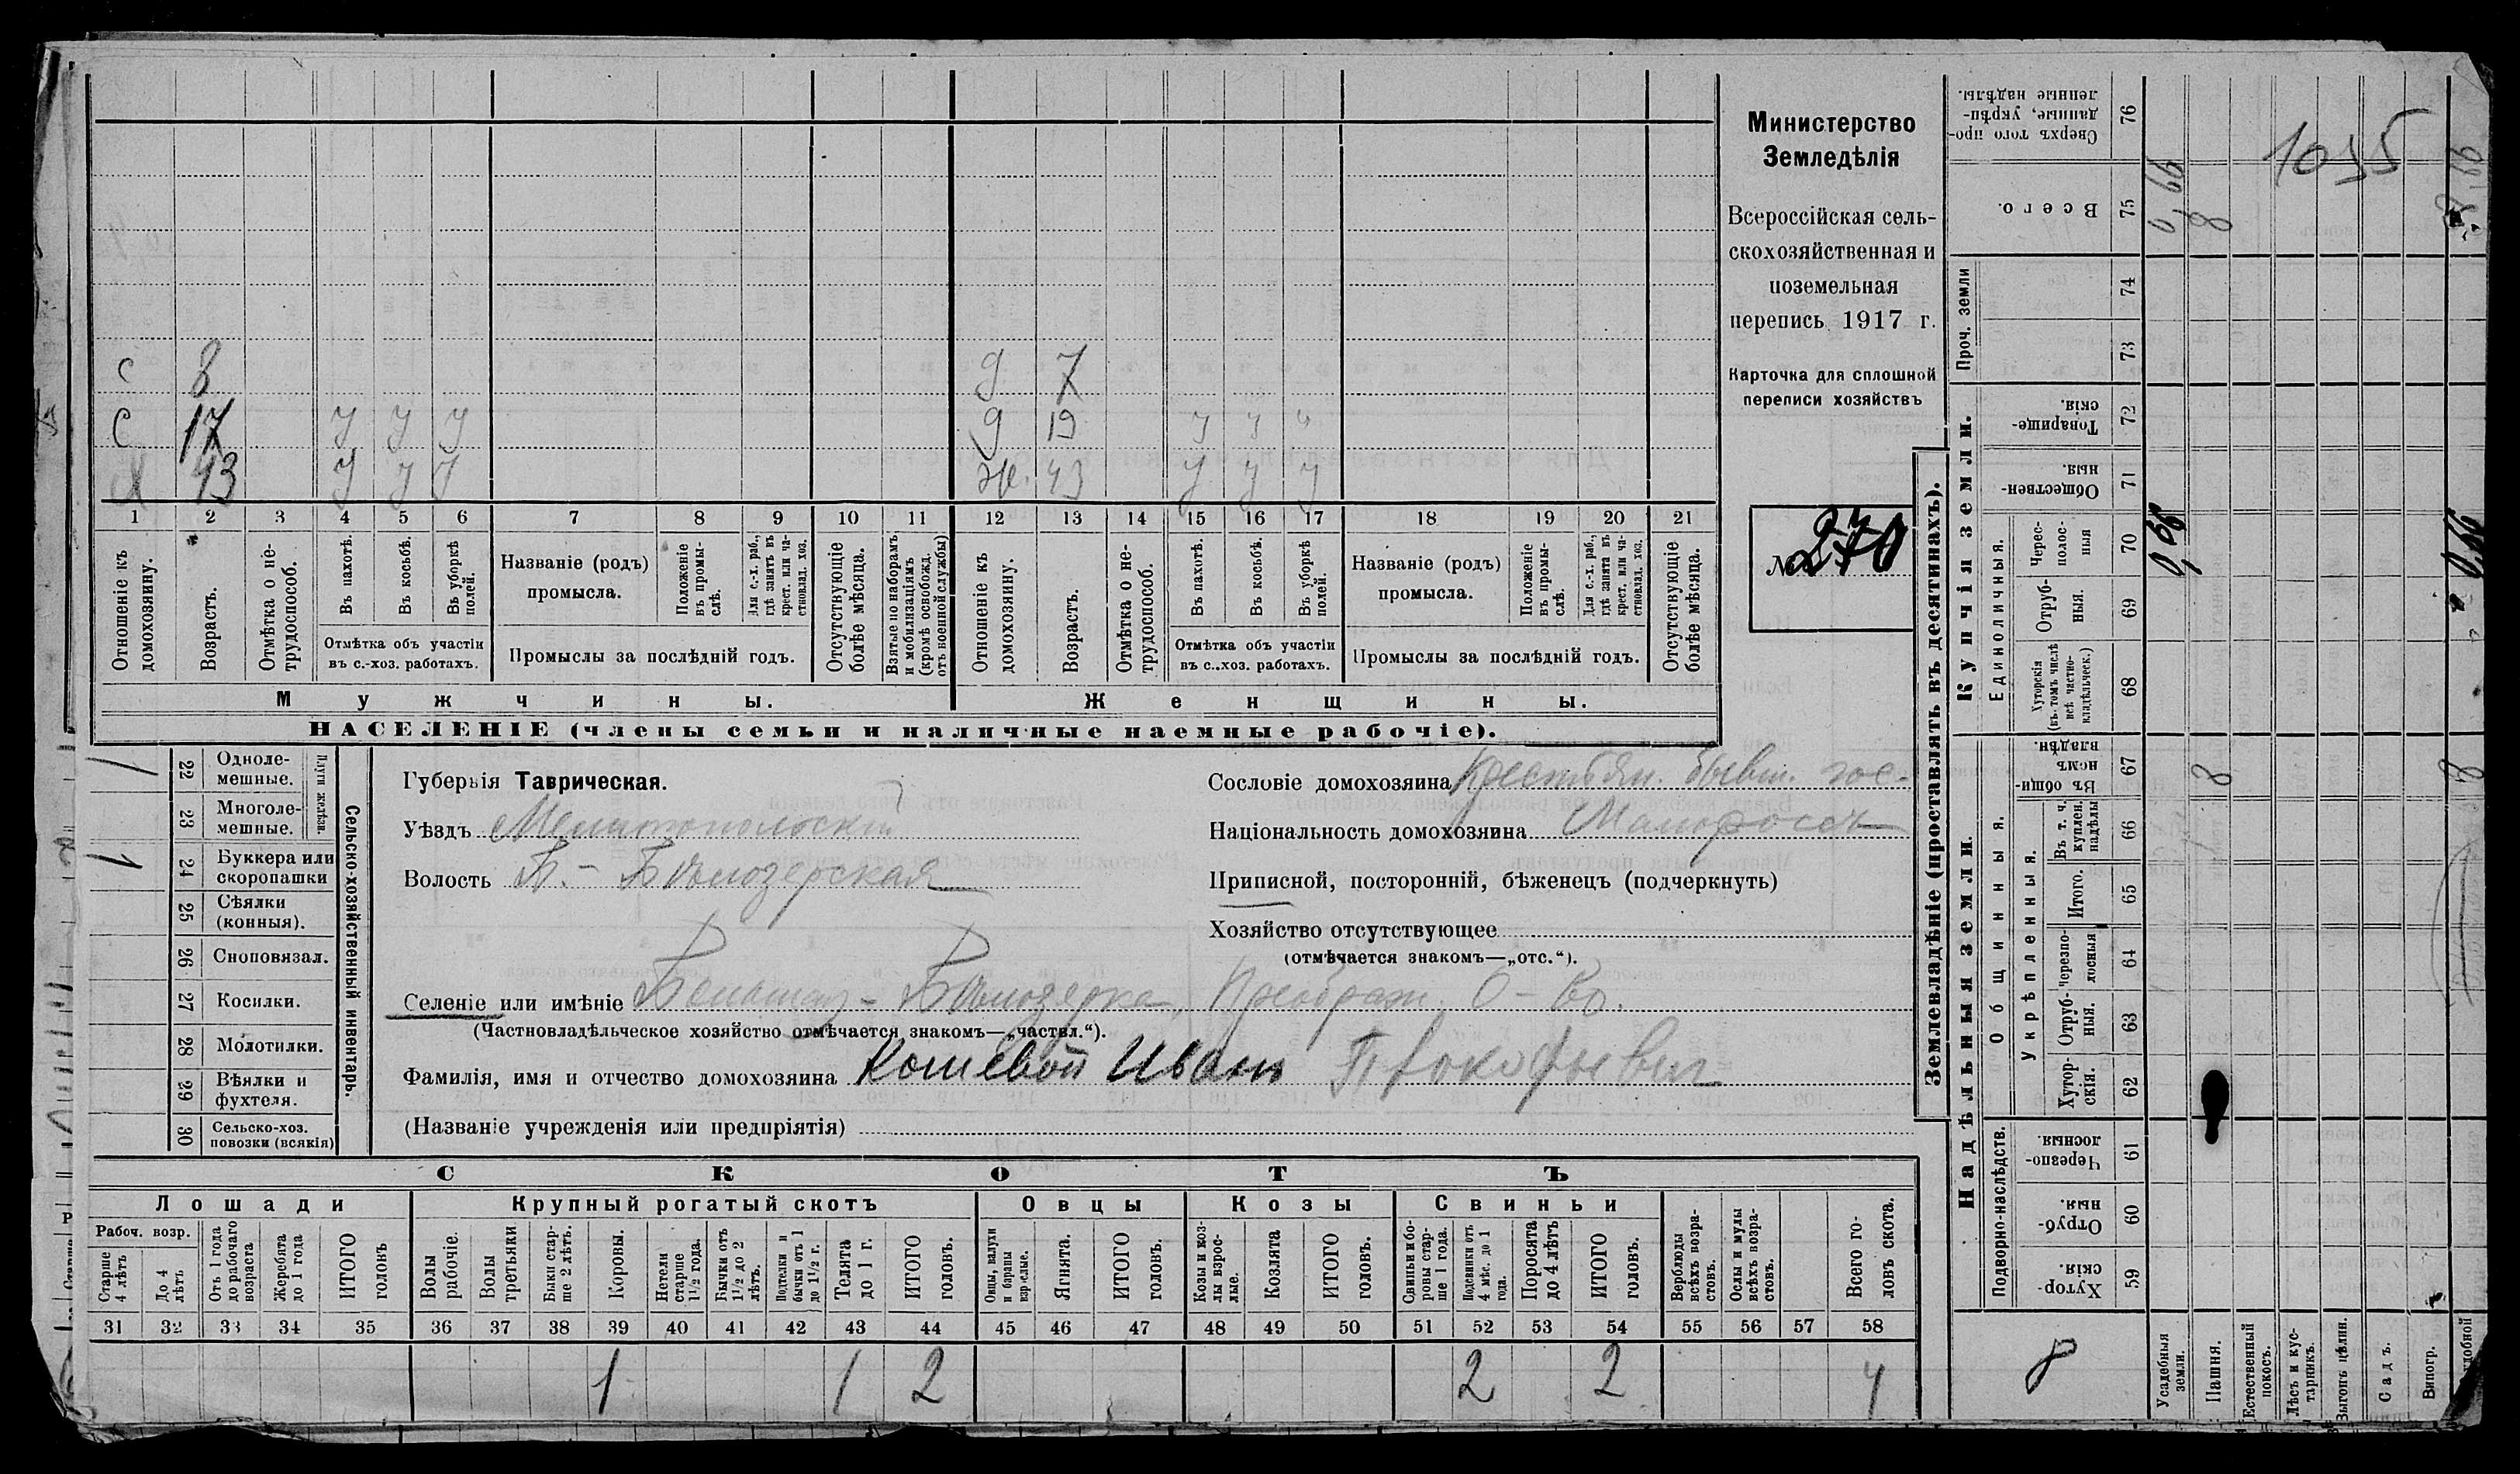 Министерство
Земледѣлія
Всероссійская сель-
скохозяйственная и
поземельная
перепись 1917 г.
Карточка для сплошной
переписи хозяйствъ
№ 270
1055
с 8
д 7
с 17 у у у
д 19 у у у
х 43 у у у
ж. 43 у у у
1 2 3 4 5 6 7 8 9 10 11 12 13 14 15 16 17 18 19 20 21
Отношеніе къ домохозяину.
Возрастъ.
Отмѣтка о не-трудоспособ.
Въ пахотѣ.
Въ косьбѣ.
Въ уборкѣ полей.
Отмѣтка объ участіи
въ с.-хоз. работахъ.
Названіе (родъ)
промысла.
Положеніе въ промы-слѣ.
Для с.-х. раб., гдѣ занятъ въ крест. или ча-стновлад. хоз.
Промыслы за послѣдній годъ.
Отсутствующіе болѣе мѣсяца.
Взятые по наборамъ и мобилизаціямъ (кромѣ освобожд. отъ военной службы)
Отношеніе къ домохозяину.
Возрастъ.
Отмѣтка о не-трудоспособ.
Въ пахотѣ.
Въ косьбѣ.
Въ уборкѣ полей.
Отмѣтка объ участіи
въ с..хоз. работахъ.
Названіе (родъ)
промысла.
Положеніе въ промы-слѣ.
Для с.-х. раб., гдѣ занята въ крест. или ча-стновлад. хоз.
Промыслы за послѣдній годъ.
Отсутствующіе болѣе мѣсяца.
Мужчины.
Женщины.
НАСЕЛЕНІЕ (члены семьи и наличные наемные рабочіе).
1 22 Одноле-мешные.
23 Многоле-мешные.
Плуги желѣзн.
1 24 Буккера или скоропашки
25 Сѣялки (конныя).
26 Сноповязал.
27 Косилки.
28 Молотилки.
29 Вѣялки и фухтеля.
30 Сельско-хоз. повозки (всякія)
Сельско-хозяйственный инвентарь.
Губернія Таврическая.
Уѣздъ Мелитопольскій
Волость Б.-Бѣлозерская
Сословіе домохозяина Крестьян. бывш. гос.
Національность домохозяина Малороссъ
Приписной, посторонній, бѣженецъ (подчеркнуть)
Хозяйство отсутствующее
(отмѣчается знакомъ—„отс.“).
Селеніе или имѣніе Бѣлозерка, Преображ. О-во.
(Частновладѣльческое хозяйство отмѣчается знакомъ—„частвл.“).
Фамилія, имя и отчество домохозяина Кошевой Иванъ Прокофьевич
(Названіе учрежденія или предпріятія)
СКОТЪ
Лошади
Крупный рогатый скотъ
Овцы
Козы
Свиньи
Рабоч. возр.
Старше 4 лѣтъ
До 4 лѣтъ
Отъ 1 года до рабочаго возраста
Жеребята до 1 года
ИТОГО головъ
Волы рабочіе.
Волы третьяки
Быки стар-ше 2 лѣтъ.
Коровы.
Нетели старше 1½ года.
Бычки отъ 1½ до 2 лѣтъ.
Подтелки и бычки отъ 1 до 1½ г.
Телята до 1 г.
ИТОГО головъ.
Овцы, валухи и бараны взрослые.
Ягнята.
ИТОГО головъ.
Козы и коз-лы взрос-лые.
Козлята
ИТОГО головъ.
Свиньи и бо-ровы стар-ше 1 года.
Подсвинки отъ 4 мѣс. до 1 года.
Поросята до 4 лѣтъ
ИТОГО головъ.
Верблюды всѣхъ возра-стовъ.
Ослы и мулы всѣхъ возра-стовъ.
Всего го-ловъ скота.
31 32 33 34 35 36 37 38 39 40 41 42 43 44 45 46 47 48 49 50 51 52 53 54 55 56 57 58
1 1 2 2 2 4
Землевладѣніе (проставлять въ десятинахъ).
Надѣльныя земли.
Купчія земли.
Проч. земли
Подворно-наслѣдств.
Общинныя.
Укрѣпленныя.
Единоличныя.
Сверхъ того про-данные, укрѣп-ленные надѣлы. 76
Всего. 75 0,66 8
74
73
Товарище-скія. 72
Обществен-ныя. 71
Черес-полос-ныя 70 0,66
Отруб-ныя. 69
Хуторскія (въ томъ числѣ всѣ частно-владѣльческ.) 68
Въ общи-номъ владѣн. 67 8
Въ т. ч. куплен. надѣлы 66
Итого. 65
Черезпо-лосныя 64
Отруб-ныя. 63
Хутор-скія. 62
Черезпо-лосныя. 61
Отруб-ныя. 60
Хутор-скія. 59
8
Усадебныя земли.
Пашня.
Естественный покосъ.
Лѣсъ и кус-тарникъ.
Выгонъ цѣлин.
Садъ.
Виногр.